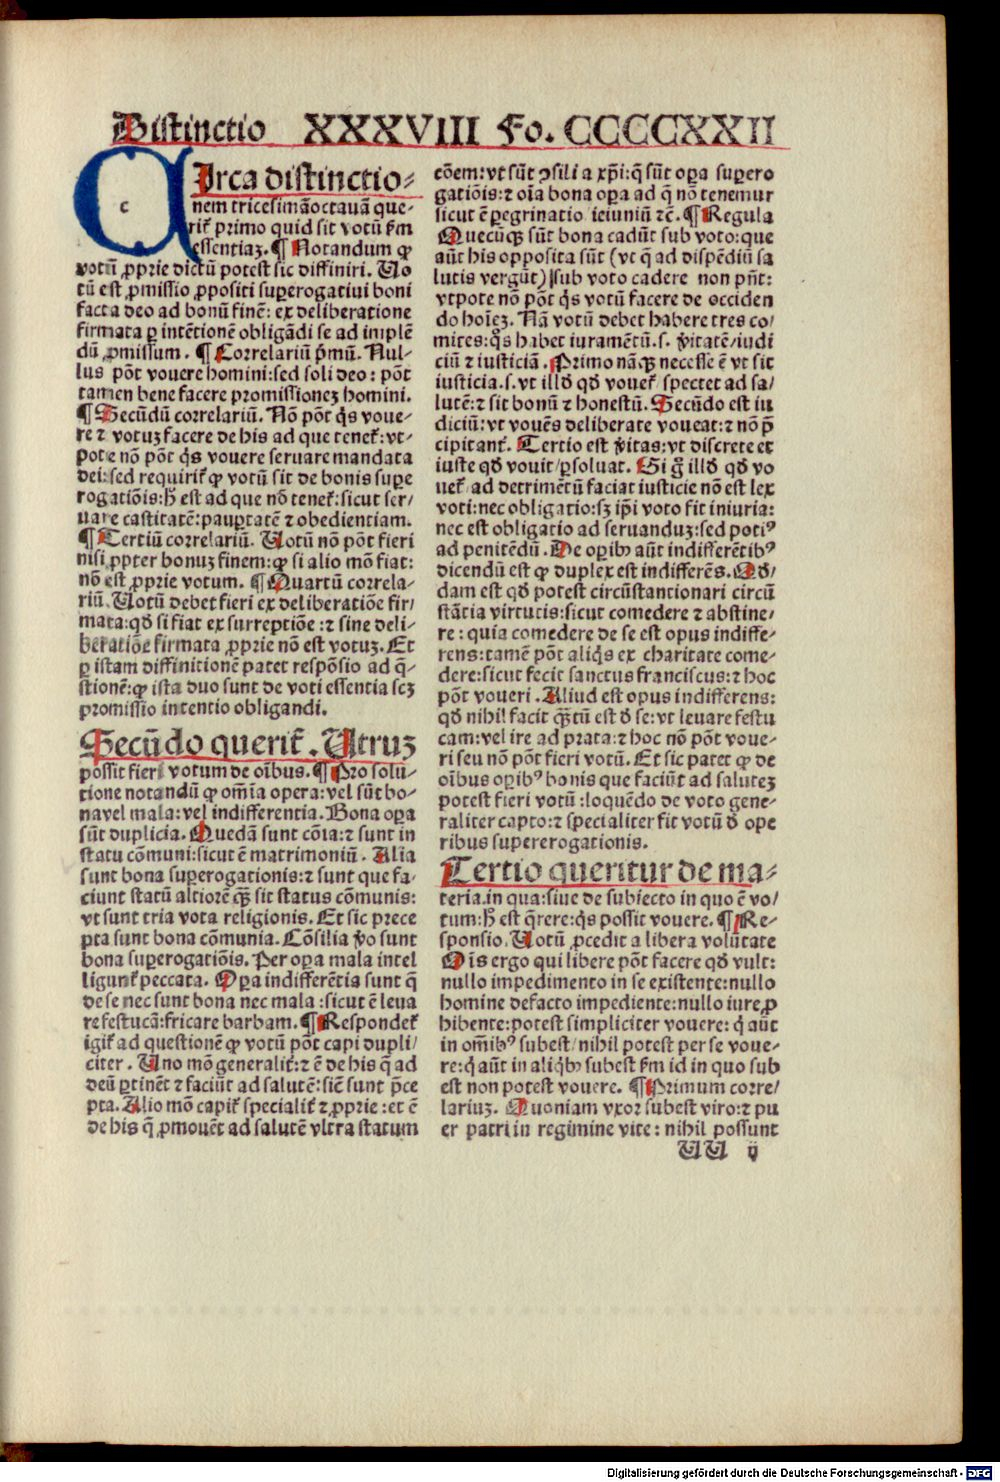 Distinctio XXXVIII Fo. CCCCCXXII
CIrca distinctio-
nem tricesimāoctauā que-
rit᷑ primo quid sit votū ẜm
essentiaʒ. ¶ Notandum ꝙ
votū ꝓprie dictū potest sic diffiniri. Uo
tū est ꝓmissio ꝓpositi suꝑerogatiui boni
facta deo ad bonū finē: ex deliberatione
firmata ꝑ intētionē obligādi se ad implē
dū ꝓmissum. ¶ Correlariū p̄mū. Nul-
lus pōt vouere homini: sed soli deo: pōt
tamen bene facere promissioneʒ homini.
¶ Secūdū correlariū. Nō pōt q̇s voue-
re ⁊ votuʒ facere de his ad que tenet᷑: vt-
pote nō pōt q̇s vouere seruare mandata
dei: sed requirit᷑ ꝙ votū sit de bonis supe
rogatiōis: h̄ est ad que nō tenet᷑: sicut ser-
uare castitatē: pauꝑtatē ⁊ obedientiam.
¶ Tertiū correlariū. Uotū nō pōt fieri
nisi ꝓpter bonuʒ finem: ꝙ si alio mō fiat:
nō est ꝓprie votum. ¶ Quartū correla-
riū. Uotū debet fieri ex deliberatiōe fir/
mata: qd̄ si fiat ex surreptiōe: ⁊ sine deli-
beratiōe firmata ꝓprie nō est votuʒ. Et
ꝑ istam diffinitionē patet respōsio ad q̄-
stionē: ꝙ ista duo sunt de voti essentia scʒ
promissio intentio obligandi.
Secūdo querit᷑. Utruʒ
possit fieri votum de oībus. ¶ Pro solu-
tione notandū ꝙ om̄ia opera: vel sūt bo-
na vel mala: vel indifferentia. Bona oꝑa
sūt duplicia. Quedā sunt cōia: ⁊ sunt in
statu cōmuni: sicut ē matrimoniū. Alia
sunt bona suꝑerogationis: ⁊ sunt que fa-
ciunt statū altiorē q̄ʒ sit status cōmunis:
vt sunt tria vota religionis. Et sic prece
pta sunt bona cōmunia. Cōsilia v̄o sunt
bona suꝑerogatiōis. Per oꝑa mala intel
ligunt᷑ peccata. Oꝑa indifferētia sunt q̄
de se nec sunt bona nec mala: sicut ē leua
re festucā: fricare barbam. ¶ Respondet᷑
igit᷑ ad questionē ꝙ votū pōt capi dupli/
citer. Uno mō generalit᷑: ⁊ ē de his q̄ ad
deū ꝑtinēt ⁊ faciūt ad salutē: sic̄ sunt p̄ce
pta. Alio mō capit᷑ specialit᷑ ⁊ ꝓprie: et ē
de his q̄ ꝓmouēt ad salutē vltra statum
cōem: vt sūt ꝯsilia xp̄i: q̄ sūt oꝑa suꝑero
gatiōis: ⁊ oīa bona oꝑa ad q̄ nō tenemur
sicut ē ꝑegrinatio ieiuniū ⁊c̄. ¶ Regula
Quecūqʒ sūt bona cadūt sub voto: que
aūt his opposita sūt (vt q̄ ad dispēdiū sa
lutis vergūt) sub voto cadere non pn̄t:
vtpote nō pōt q̇s votū facere de occiden
do hoīeʒ. Nā votū debet habere tres co/
mites: q̇s habet iuramētū. s. v̄itatē/ iudi
ciū ⁊ iusticiā. Primo nāqʒ necesse ē vt sit
iusticia. s. vt illd̄ qd̄ vouet᷑ spectet ad sa/
lutē: ⁊ sit bonū ⁊ honestū. Secūdo est iu
diciū: vt vouēs deliberate voueat: ⁊ nō p̄
cipitant᷑. Tertio est v̄itas: vt discrete et
iuste qd̄ vouit/ ꝑsoluat. Si g̃ illd̄ qd̄ vo
uet᷑ ad detrimētū faciat iusticie nō est lex
voti: nec obligatio: sʒ ip̄i voto fit iniuria:
nec est obligatio ad seruanduʒ: sed potiꝰ
ad penitēdū. De oꝑibꝰ aūt indifferētibꝰ
dicendū est ꝙ duplex est indifferēs. Qd̄/
dam est qd̄ potest circūstantionari circū
stātia virtutis: sicut comedere ⁊ abstine-
re: quia comedere de se est opus indiffe-
rens: tamē pōt aliq̇s ex charitate come-
dere: sicut fecit sanctus franciscus: ⁊ hoc
pōt voueri. Aliud est opus indifferens:
qd̄ nihil facit q̄ʒtū est d̄ se: vt leuare festu
cam: vel ire ad prata: ⁊ hoc nō pōt voue-
ri seu nō pōt fieri votū. Et sic patet ꝙ de
oībus oꝑibꝰ bonis que faciūt ad saluteʒ
potest fieri votū: loquēdo de voto gene-
raliter capto: ⁊ specialiter fit votū d̄ ope
ribus supererogationis.
Tertio queritur de ma-
teria. in qua: siue de subiecto in quo ē vo/
tum: h̄ est q̄rere: q̇s possit vouere. ¶ Re-
sponsio. Uotū ꝓcedit a libera volūtate
Oīs ergo qui libere pōt facere qd̄ vult:
nullo impedimento in se existente: nullo
homine defacto impediente: nullo iure ꝓ
hibente: potest simpliciter vouere: q̇ aūt
in om̄ibꝰ subest/ nihil potest per se voue-
re: q̇ aūt in aliq̇bꝰ subest ẜm id in quo sub
est non potest vouere. ¶ Primum corre/
lariuʒ. Quoniam vxor subest viro: ⁊ pu
er patri in regimine vite: nihil possunt
UU ij
Digitalisierung gefördert durch die Deutsche Forschungsgemeinschaft - DFG